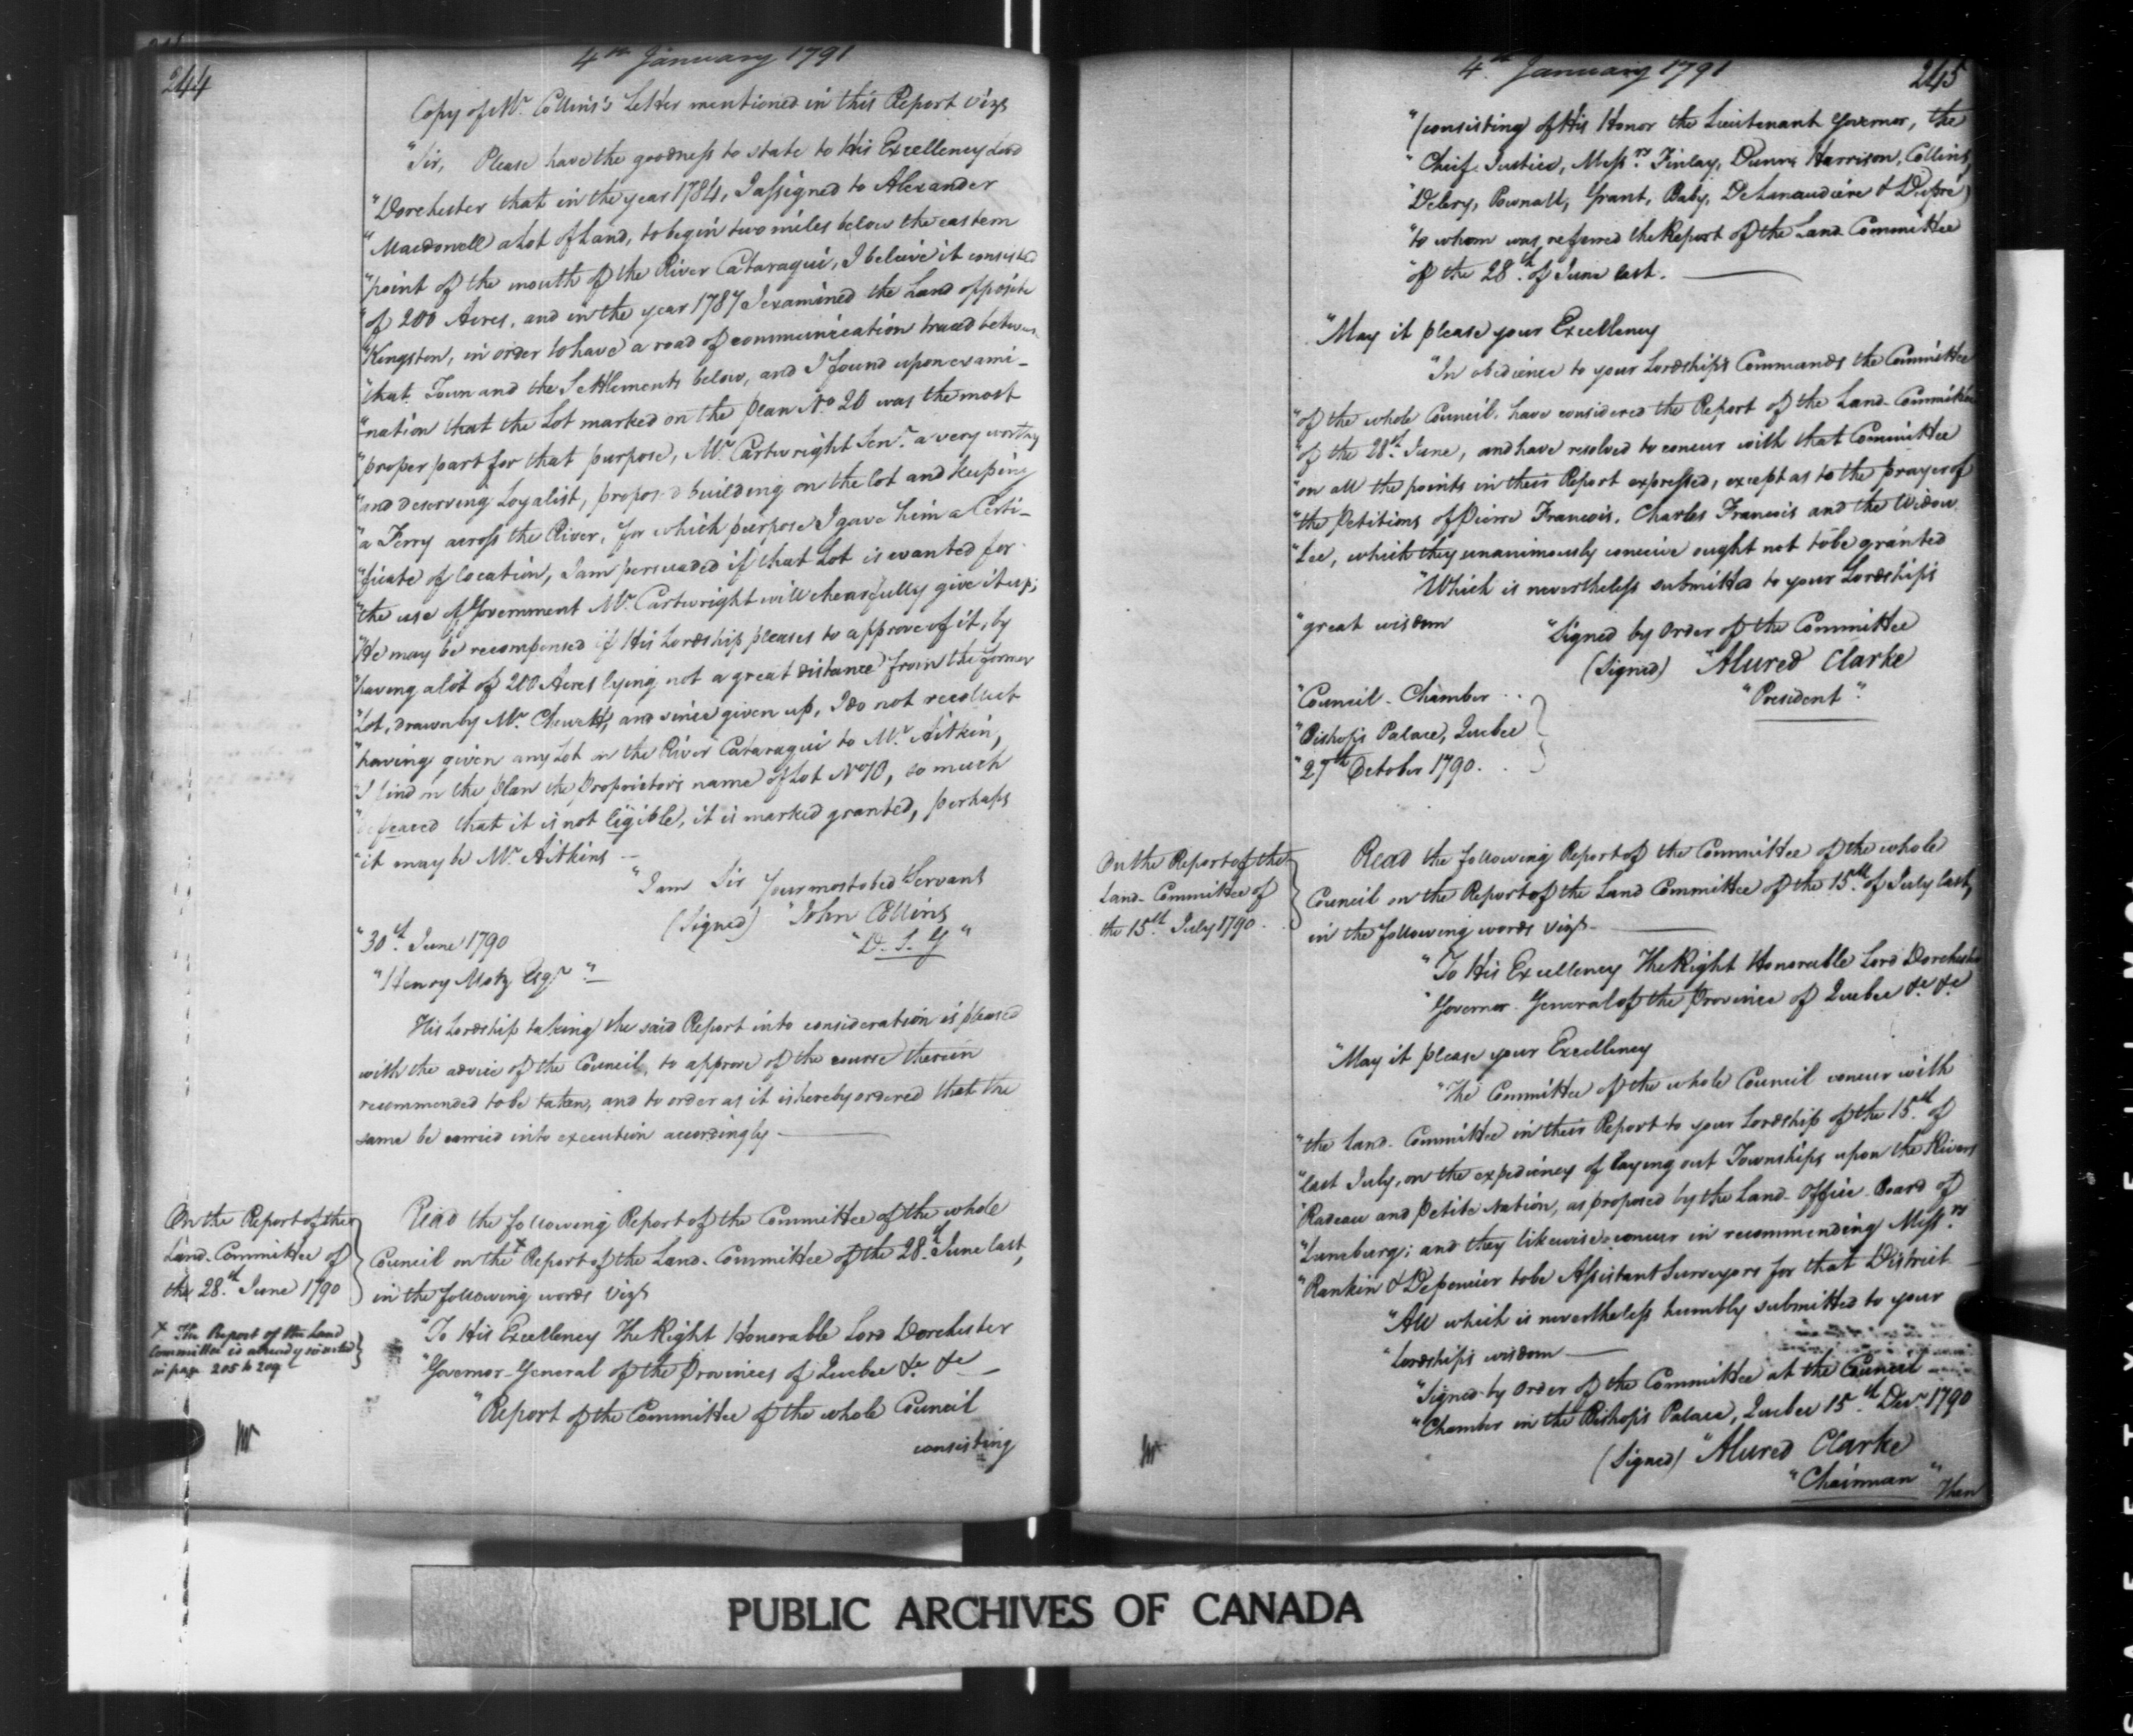 244
4th January 1791
Copy of Mr. Collins's Letter mentioned in this Report vizt
"Sir, Please have the goodness to state to His Excellency Lord
"Dorchester that in the year 1784, I assigned to Alexander
"Macdonell a Lot of Land, to begin two miles below the eastern
"point of the mouth of the River Cataraqui, I believe it consisted
"of 200 Acres, and in the year 1787 I examined the Land opposite
"Kingston, in order to have a road of communication traced between
"that Town and the Settlements below, and I found upon exami-
"nation that the Lot marked on the plan No. 20 was the most
"proper part for that purpose, Mr. Cartwright Senr. a very worthy
"and deserving Loyalist, proposed building on the lot and keeping
"a Ferry across the River, for which purpose I gave him a Certi-
"ficate of location, I am persuaded if that Lot is wanted for
"the use of Government Mr. Cartwright will chearfully give it up;
"He may be recompensed if His Lordship pleases to approve of it, by
"having a lot of 200 Acres lying not a great distance from the former
"Lot, drawn by Mr. Chewett, and since given up, I do not recollect
"having given any Lot on the River Cataraqui to Mr. Aitkin,
"I find on the plan the Proprietors name of Lot No 10, so much
"defeaced that it is not legible, it is marked granted, perhaps
"it may be Mr. Aitkins —
"I am Sir Your most obed Servant
(Signed) "John Collins
"D. S. G"
"30th. June 1790
"Henry Motz Esqr. "—
His Lordship taking the said Report into consideration is pleased
with the advice of the Council, to approve of the course therein
recommended to be taken, and to order as it is hereby ordered that the
same be carried into execution accordingly —
On the Report of the
Land-Committee of
the 28th. June 1790
Read the following Report of the Committee of the whole
Council on the x Report of the Land-Committee of the 28th. June last,
in the following words vizt
x The Report of the Land
Committee is already inserted
in page 205 to 209
"To His Excellency The Right Honorable Lord Dorchester
"Governor-General of the Provinces of Quebec &c. &c —
"Report of the Committee of the whole Council
consisting
4th. January 1791
245
"(consisting of His Honor the Lieutenant Governor, the
"Chief Justice, Messrs. Finlay, Dunn, Harrison, Collins,
"Delery, Pownall, Grant, Baby, De Lanaudiere & Dupré)
"to whom was referred the Report of the Land Committee
"of the 28th. of June last. —
"May it please your Excellency
"In obedience to your Lordship's Commands the Committee
"of the whole Council, have considered the Report of the Land-Committee
"of the 28th. June, and have resolved to concur with that Committee
"on all the points in their Report expressed, except as to the prayer of
"the Petitions of Pierre Francois, Charles Francois and the Widow
"Lee, which they unanimously conceive ought not to be granted
"Which is nevertheless submitted to your Lordship's
"great wisdom
"Signed by Order of the Committee
(Signed) "Alured Clarke
"President".
"Council-Chamber
"Bishop's Palace, Quebec
"27th October 1790.
On the Report of the
Land-Committee of
the 15th July 1790.
Read the following Report of the Committee of the whole
Council on the Report of the Land Committee of the 15th. of July last,
in the following words vizt. —
"To His Excellency The Right Honorable Lord Dorchester
"Governor-General of the Province of Quebec &c. &c
"May it please your Excellency
"The Committee of the whole Council concur with
"the Land-Committee in their Report to your Lordship of the 15th. of
"last July, on the expediency of laying out Townships upon the Rivers
"Radeau and Petite Nation, as proposed by the Land-Office-Board of
"Luneburg; and they likewise concur in recommending Messrs.
"Rankin & Depencier to be Assistant Surveyors for that District
"All which is nevertheless humbly submitted to your
"Lordship's wisdom —
"Signed by Order of the Committee at the Council
"Chamber in the Bishop's Palace, Quebec 15th. Decr. 1790
(Signed) "Alured Clarke
"Chairman"
Then
PUBLIC ARCHIVES OF CANADA